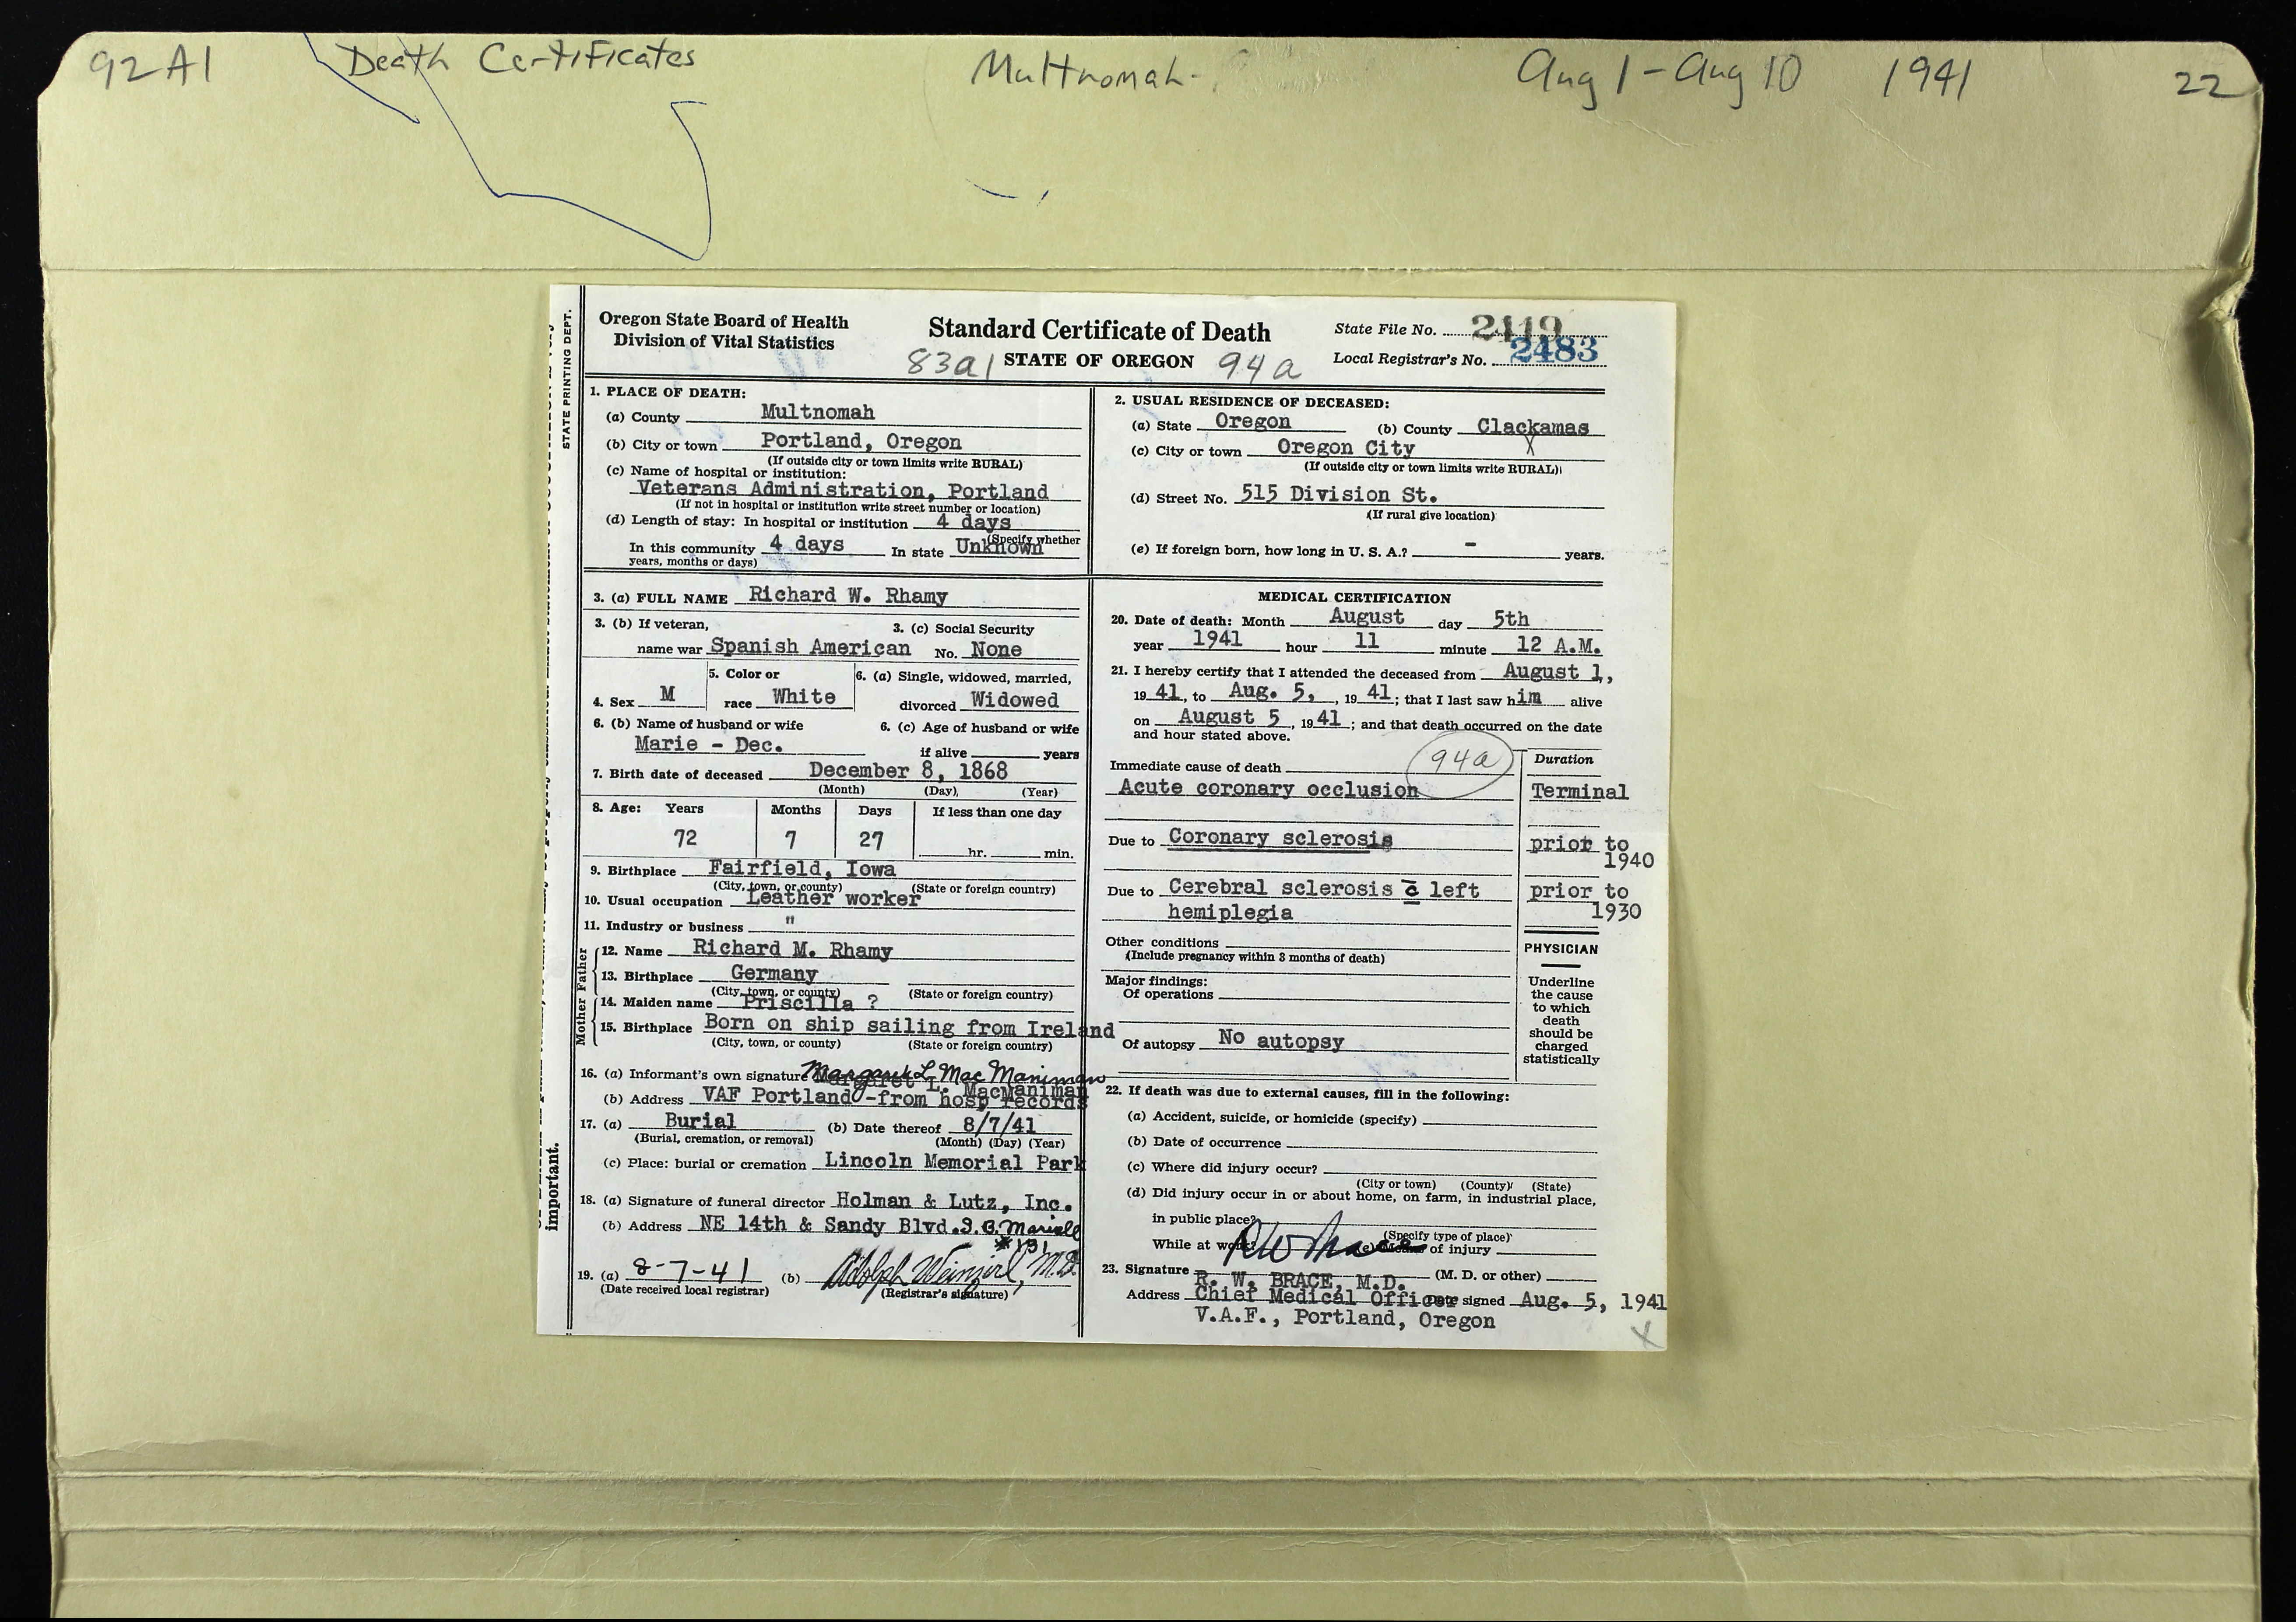 92A1 Death Certificates Multnomah Aug 1 - Aug 10 1941 22
STATE PRINTING DEPT.
important.
Oregon State Board of Health
Division of Vital Statistics
Standard Certificate of Death
83a1 STATE OF OREGON 94a
State File No. 2419
Local Registrar's No. 2483
1. PLACE OF DEATH:
(a) County Multnomah
(b) City or town Portland, Oregon
(If outside city or town limits write RURAL)
(c) Name of hospital or institution:
Veterans Administration, Portland
(If not in hospital or institution write street number or location)
(d) Length of stay: In hospital or institution 4 days
(Specify whether
In this community 4 days In state Unknown
years, months or days)
2. USUAL RESIDENCE OF DECEASED:
(a) State Oregon (b) County Clackamas
(c) City or town Oregon City X
(If outside city or town limits write RURAL)
(d) Street No. 515 Division St.
(If rural give location)
(e) If foreign born, how long in U. S. A.? - years.
3. (a) FULL NAME Richard W. Rhamy
3. (b) If veteran, 3. (c) Social Security
name war Spanish American No. None
4. Sex M 5. Color or race White 6. (a) Single, widowed, married, divorced Widowed
6. (b) Name of husband or wife 6. (c) Age of husband or wife
Marie - Dec. if alive years
7. Birth date of deceased December 8, 1868
(Month) (Day) (Year)
8. Age: Years Months Days If less than one day
72 7 27 hr. min.
9. Birthplace Fairfield, Iowa
(City, town, or county) (State or foreign country)
10. Usual occupation Leather worker
11. Industry or business "
Father
12. Name Richard M. Rhamy
13. Birthplace Germany
(City, town, or county) (State or foreign country)
Mother
14. Maiden name Priscilla ?
15. Birthplace Born on ship sailing from Ireland
(City, town, or county) (State or foreign country)
16. (a) Informant's own signature Margaret L. Mac Maniman
Margaret L. MacManiman
(b) Address VAF Portland -from hosp records
17. (a) Burial (b) Date thereof 8/7/41
(Burial, cremation, or removal) (Month) (Day) (Year)
(c) Place: burial or cremation Lincoln Memorial Park
18. (a) Signature of funeral director Holman & Lutz, Inc.
(b) Address NE 14th & Sandy Blvd.
#131
19. (a) 8-7-41 (b) Adolph Weinzirl, M.D.
(Date received local registrar) (Registrar's signature)
MEDICAL CERTIFICATION
20. Date of death: Month August day 5th
year 1941 hour 11 minute 12 A.M.
21. I hereby certify that I attended the deceased from August 1,
19 41, to Aug. 5, , 19 41; that I last saw him alive
on August 5 , 19 41 ; and that death occurred on the date
and hour stated above.
Immediate cause of death 94a Duration
Acute coronary occlusion Terminal
Due to Coronary sclerosis prior to
1940
Due to Cerebral sclerosis c̄ left prior to
hemiplegia 1930
Other conditions
(Include pregnancy within 3 months of death)
Major findings:
Of operations
Of autopsy No autopsy
PHYSICIAN
Underline
the cause
to which
death
should be
charged
statistically
22. If death was due to external causes, fill in the following:
(a) Accident, suicide, or homicide (specify)
(b) Date of occurrence
(c) Where did injury occur?
(City or town) (County) (State)
(d) Did injury occur in or about home, on farm, in industrial place,
in public place?
(Specify type of place)
While at work? (e) Means of injury
23. Signature RW Brace (M. D. or other)
R. W. BRACE, M.D.
Address Chief Medical Officer Date signed Aug. 5, 1941
V.A.F., Portland, Oregon
X